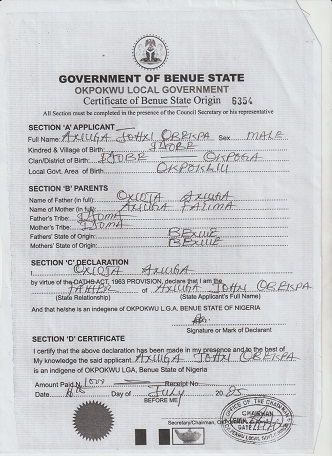 GOVERNMENT OF BENUE STATE
OKPOKWU LOCAL GOVERNMENT
Certificate of Benue State Origin 6354
All Section must be completed in the presence of the Council Secretary or his representative
SECTION 'A' APPLICANT
Full Name: AXIUGA JOHXI OBEISPA Sex MALE
Kindred & Village of Birth: IJOBE
Clan/District of Birth: IJOBE OKPOGA
Local Govt. Area of Birth: OKPOKWU
SECTION 'B' PARENTS
Name of Father (in full): OXIOJA AXIUGA
Name of Mother (in full): AXIUGA FATIMA
Father's Tribe: IDOMA
Mother's Tribe: IDOMA
Fathers' State of Origin: BEXIUE
Mothers' State of Origin: BEXIUE
SECTION 'C' DECLARATION
I OXIOJA AXIUGA
by virtue of the OATHS ACT, 1963 PROVISION, declare that I am the
FATHER of AXIUGA JOHXI OBEISPA
(State Relationship) (State Applicant's Full Name)
And that he/she is an indegene of OKPOKWU L.G.A, BENUE STATE OF NIGERIA
Signature or Mark of Declarant
SECTION 'D' CERTIFICATE
I certify that the above declaration has been made in my presence and to the best of
My knowledge the said applicant AXIUGA JOHXI OBEISPA
is an indigene of OKPOKWU LGA, Benue State of Nigeria
Amount Paid N Receipt No.
Date Day of July 20 05
BEFORE ME
OFFICE OF THE CHAIRMAN
CHAIRMAN
Secretary/Chairman,